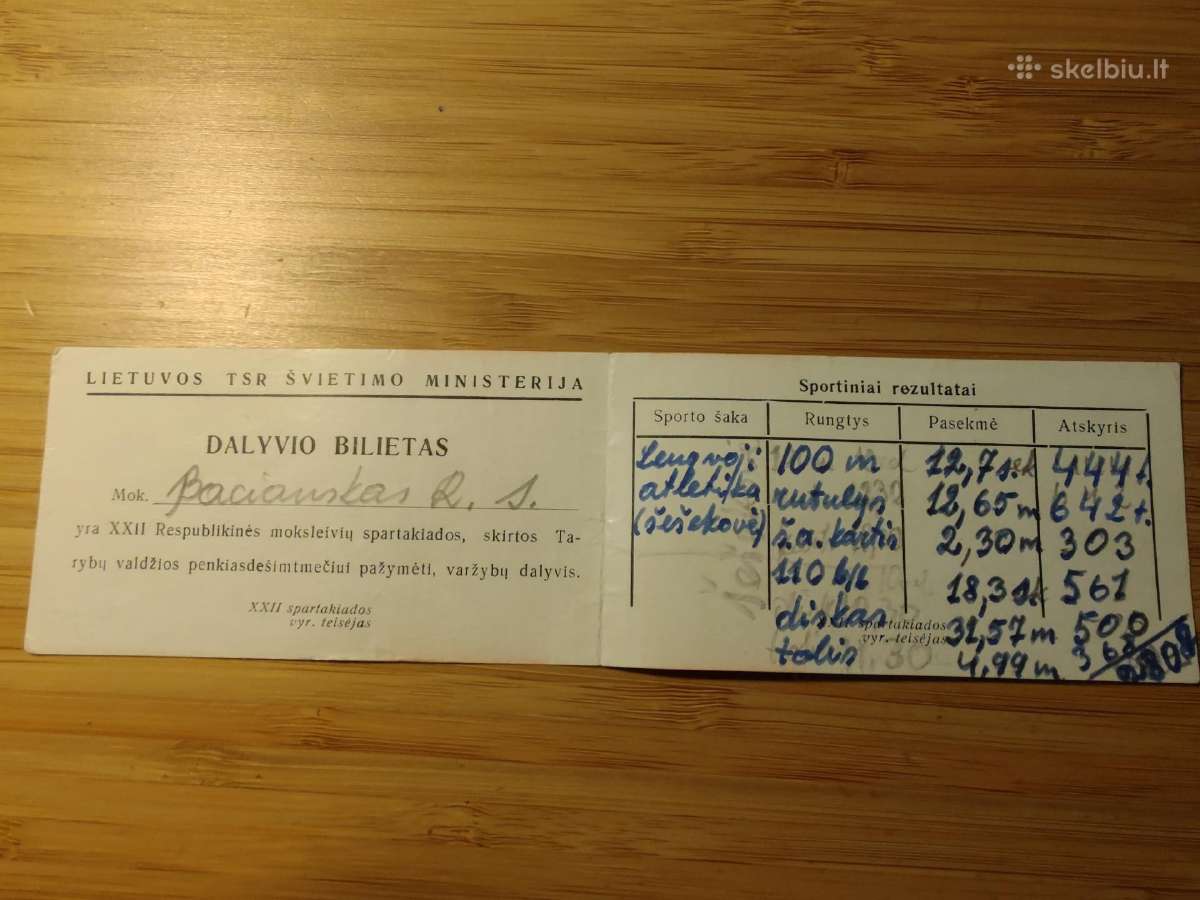 skelbiu.lt
LIETUVOS TSR ŠVIETIMO MINISTERIJA
DALYVIO BILIETAS
Mok. Baciauskas R. S.
yra XXII Respublikinės moksleivių spartakiados, skirtos Ta-
rybų valdžios penkiasdešimtmečiui pažymėti, varžybų dalyvis.
XXII spartakiados
vyr. teisėjas
Sportiniai rezultatai
Sporto šaka Rungtys Pasekmė Atskyris
Lengvoji 100 m 12,7 sek 444 t.
atletika rutulys 12,65 m 642 t.
(šešekovė) š.a. kartis 2,30 m 303
110 b/b 18,3 sk 561
diskas 31,57 m 500
spartakiados
vyr. teisėjas
tolis 4,99 m